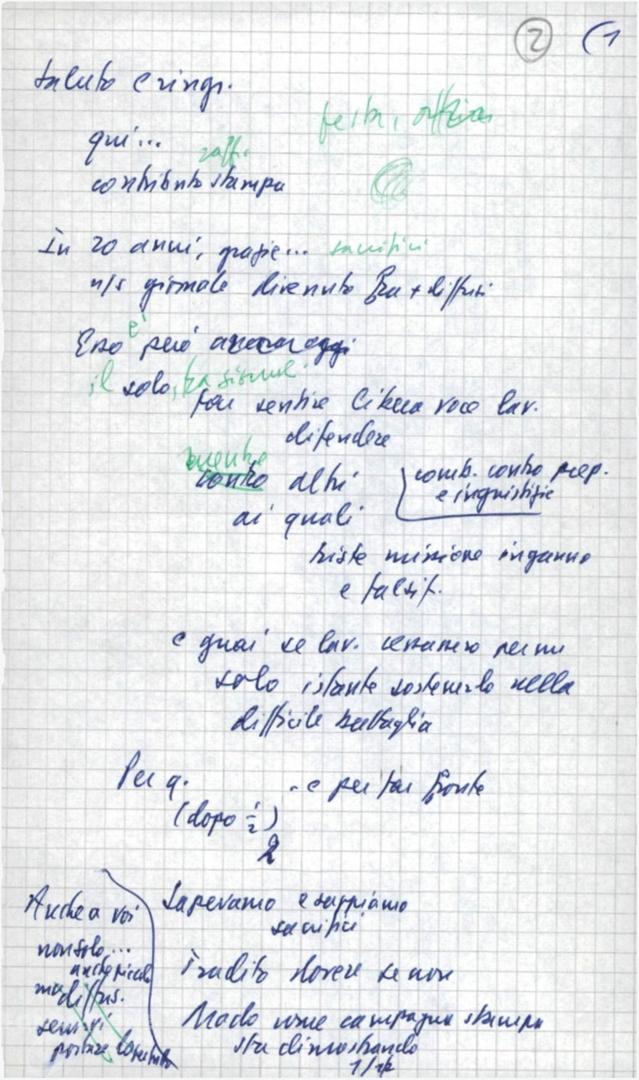 ② (1
Saluto e ringr.
festa,
qui...
contributo stampa
In 20 anni, grazie... sacrifici
n/s giornale divenuto fra + diffusi
Esso è però
il solo,
far sentire libera voce lav.
difendere
mentre
contro altri
comb. contro prep.
e ingiustizie
ai quali
triste missione inganno
e falsif.
e guai se lav. cessassero per un
solo istante sostenerlo nella
difficile battaglia
Per q. .. e per far fronte
(dopo 1/2)
2
Sapevamo e sappiamo
sacrifici
Anche a voi
non solo...
anche piccola
ma diffus.
servirvi
portare
dovere se non
Modo come campagna stampa
sta dimostrando